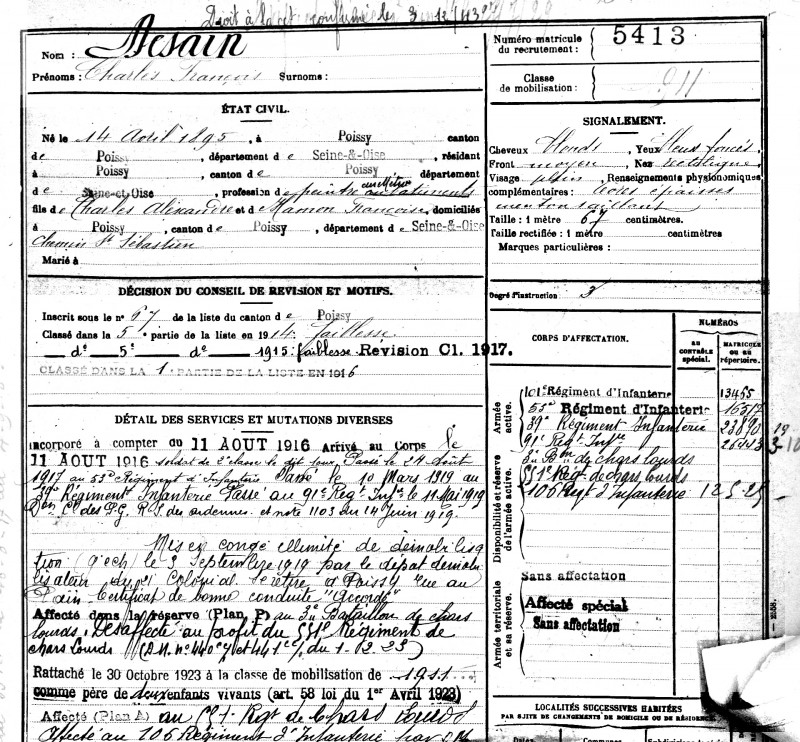 Droit à la cte confirmé les
Nom : Desain
Prénoms : Charles François Surnoms :
Numéro matricule du recrutement : 5413
Classe de mobilisation : 1911
ÉTAT CIVIL.
Né le 14 Avril 1895, à Poissy canton
de Poissy, département de Seine-&-Oise, résidant
à Poissy, canton de Poissy département
de Seine-et-Oise, profession de peintre en batiments
fils de Charles Alexandre et de Mamon Françoise, domiciliés
à Poissy, canton de Poissy, département de Seine-&-Oise
Chemin St Sébastien
Marié à
SIGNALEMENT.
Cheveux blonds, Yeux bleus foncés
Front moyen, Nez rectiligne
Visage plein, Renseignements physionomiques
complémentaires : épaisses
menton saillant
Taille : 1 mètre 67 centimètres.
Taille rectifiée : 1 mètre centimètres
Marques particulières :
Degré d'instruction : 3
DÉCISION DU CONSEIL DE REVISION ET MOTIFS.
Inscrit sous le n° 67 de la liste du canton de Poissy
Classé dans la 5e partie de la liste en 1914. Faiblesse
— de — 5e — de — 1915: faiblesse Révision Cl. 1917.
CLASSÉ DANS LA 1e PARTIE DE LA LISTE EN 1916
DÉTAIL DES SERVICES ET MUTATIONS DIVERSES
Incorporé à compter du 11 AOUT 1916 Arrivé au Corps le
11 AOUT 1916 soldat de 2e classe le dit jour. Passé le 24 Août
1917 au 55e Régiment d'Infanterie Passé le 10 Mars 1919 au
39e Régiment Infanterie Passé au 91e Regt Infie le 11 Mai 1919
Don Cl des P.G R.S. des ardennes et note 1103 du 14 Juin 1919
Mis en congé illimité de démobilisa
tion (9e ech) le 3 Septembre 1919 par le dépôt démob
lisateur du 21e Colonial se retire à Poissy rue au
Pain Certificat de bonne conduite "Accordé"
Affecté dans la réserve (Plan P) au 3e Bataillon de chars
lourds. Désaffecté au profit du 551e Régiment de
chars Lourds (D.M. n° 440 et 441 du 1-02.23)
Rattaché le 30 Octobre 1923 à la classe de mobilisation de 1911
comme père de deux enfants vivants (art. 58 loi du 1er Avril 1923)
Affecté (Plan A) au 551e Regt de Chars Lourds
Affecté au 106 Régiment d'Infanterie par
CORPS D'AFFECTATION.
NUMÉROS
AU CONTRÔLE SPÉCIAL
MATRICULE OU AU RÉPERTOIRE.
Armée active.
101e Régiment d'Infanterie 13455
55e Régiment d'Infanterie 16517
39e Régiment Infanterie 23890
91e Regt Infie 26443
Disponibilité et réserve de l'armée active.
3e Bon de chars lourds
551e Regt de chars lourds
106 Regt d'Infanterie 12 5-25
Armée territoriale et sa réserve.
Sans affectation
Affecté spécial
Sans affectation
LOCALITÉS SUCCESSIVES HABITÉES
PAR SUITE DE CHANGEMENTS DE DOMICILE OU DE RÉSIDENCE
Dates. Communes.